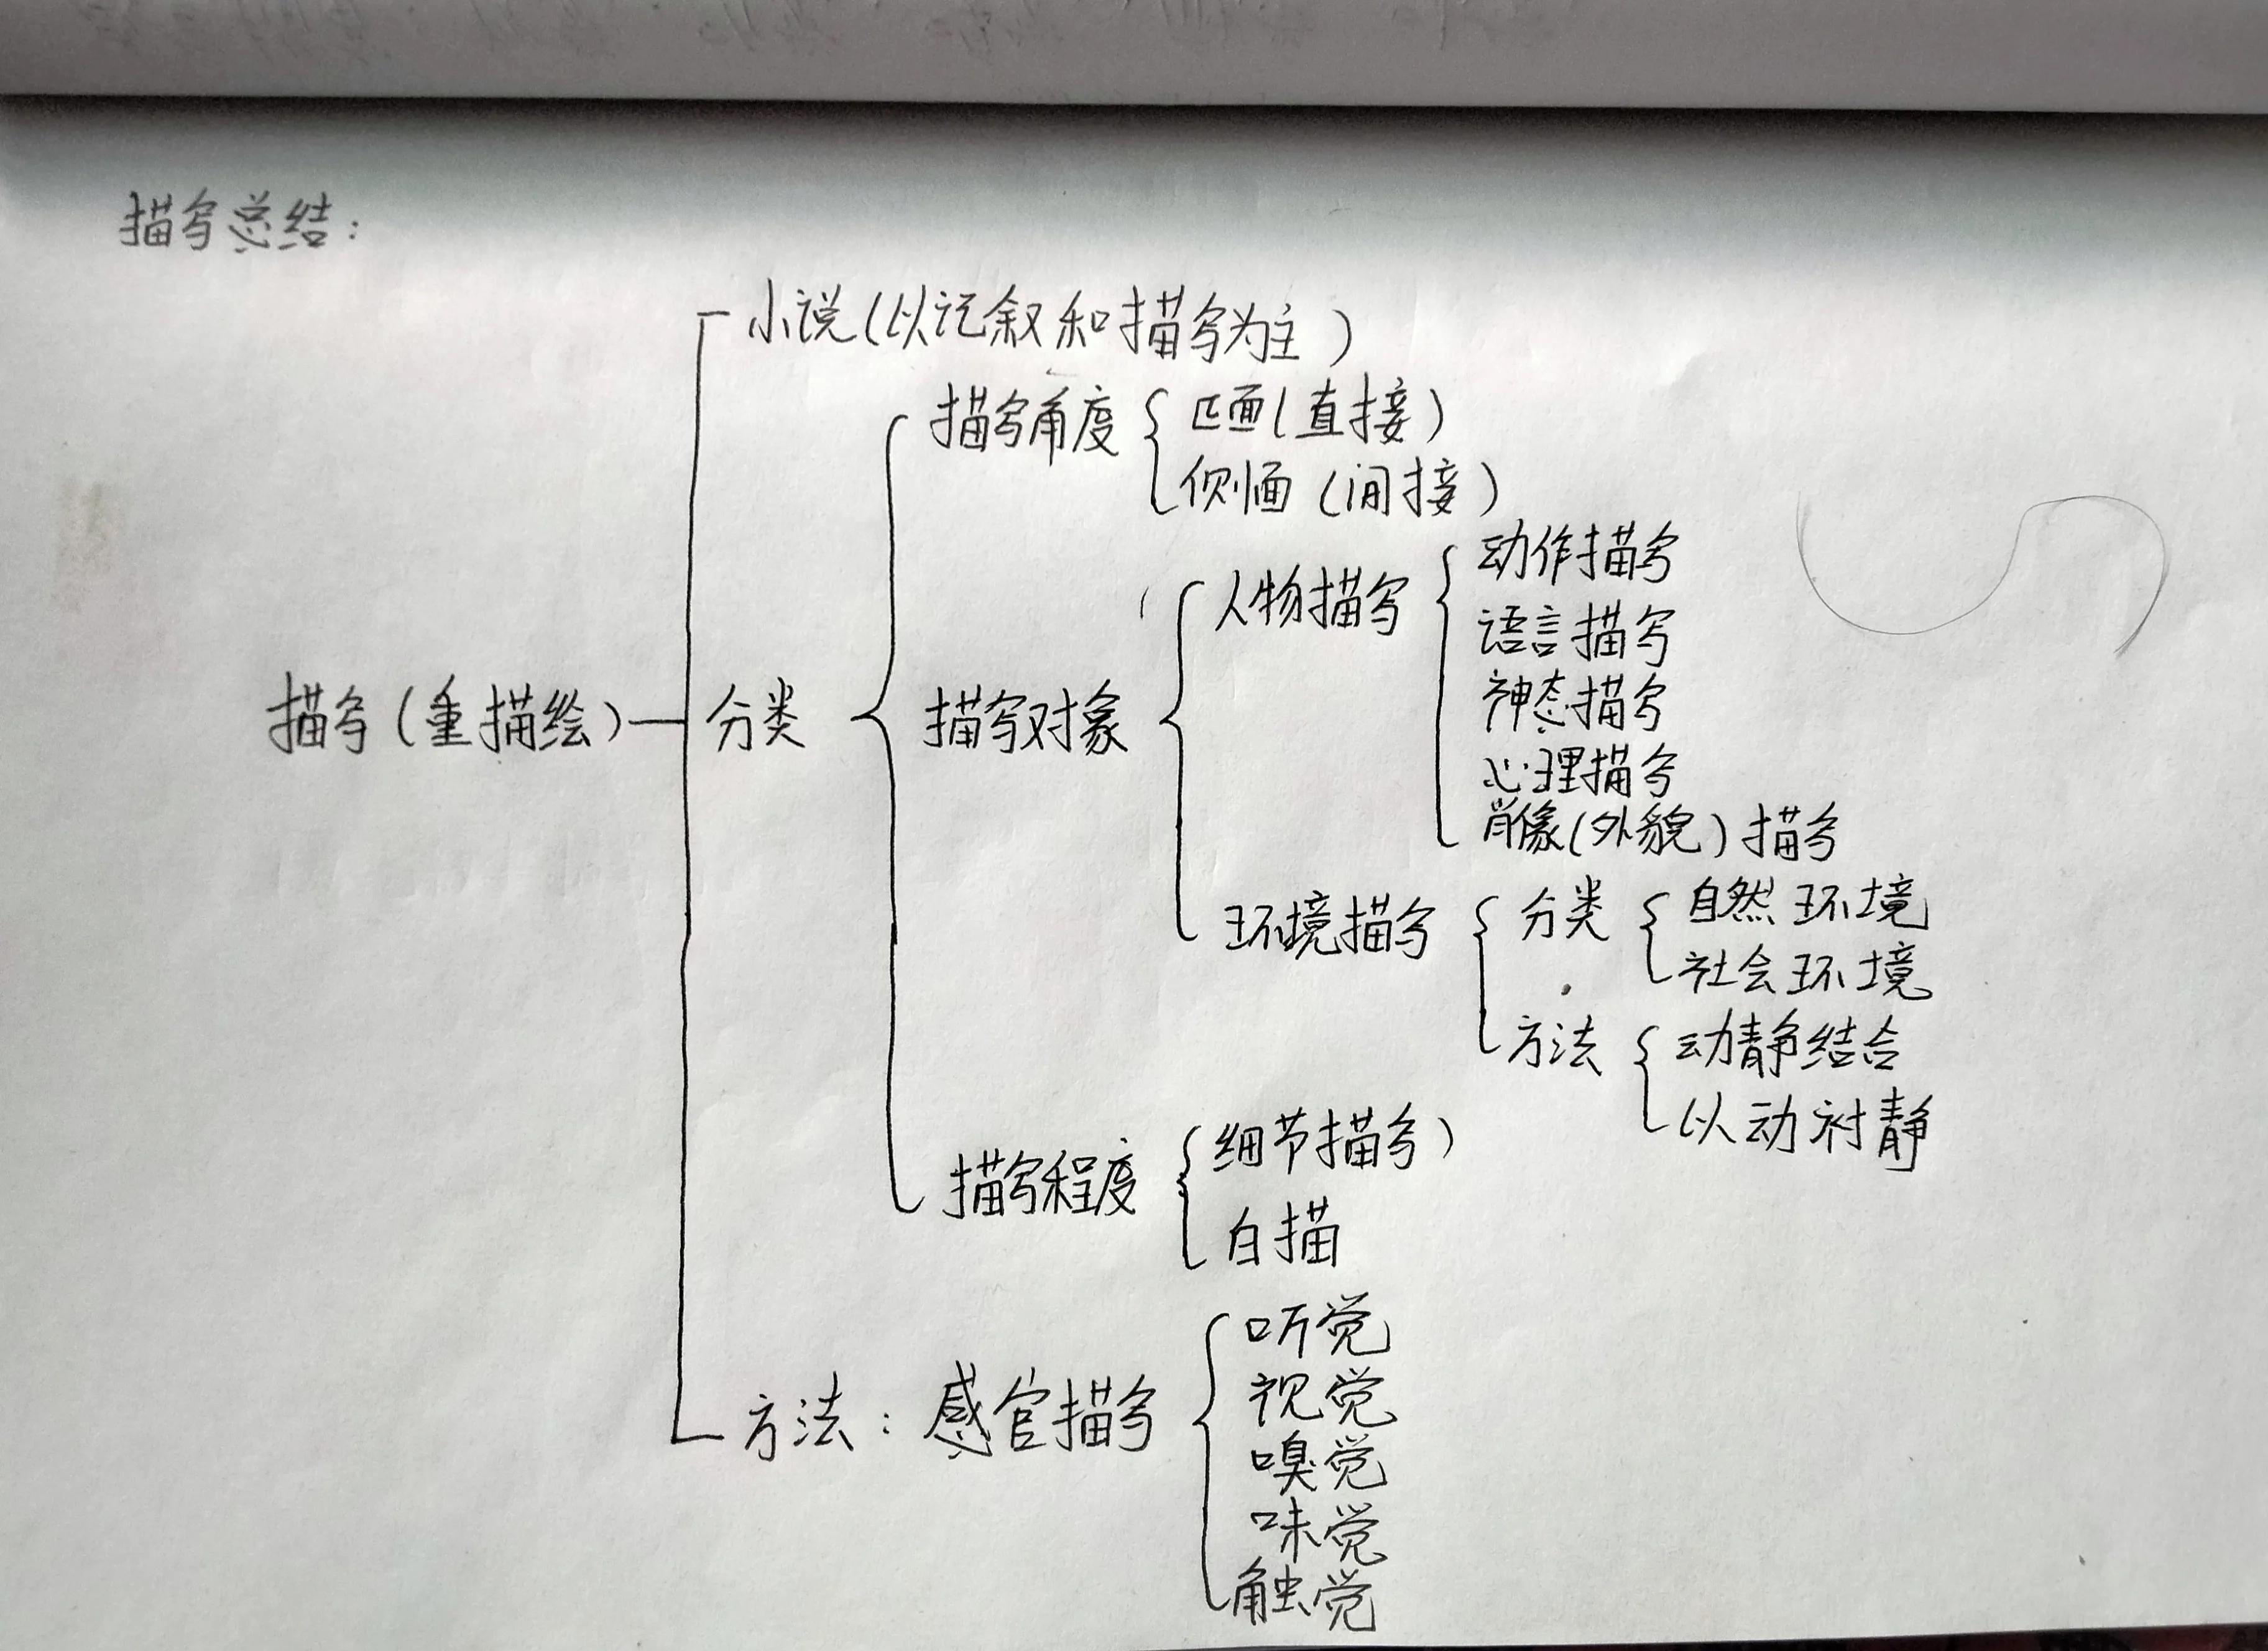 描写总结：
小说(以记叙和描写为主)
描写角度
正面(直接)
侧面(间接)
描写(重描绘)
分类
描写对象
人物描写
动作描写
语言描写
神态描写
心理描写
肖像(外貌)描写
环境描写
分类
自然环境
社会环境
方法
动静结合
以动衬静
描写程度
细节描写)
白描
方法：感官描写
听觉
视觉
嗅觉
味觉
触觉